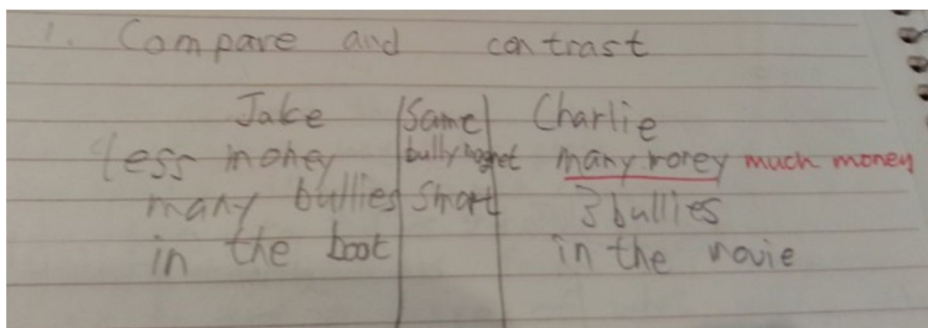 1. Compare and contrast
Jake Same Charlie
less money bully magnet many money much money
many bullies Short 3 bullies
in the boot in the movie